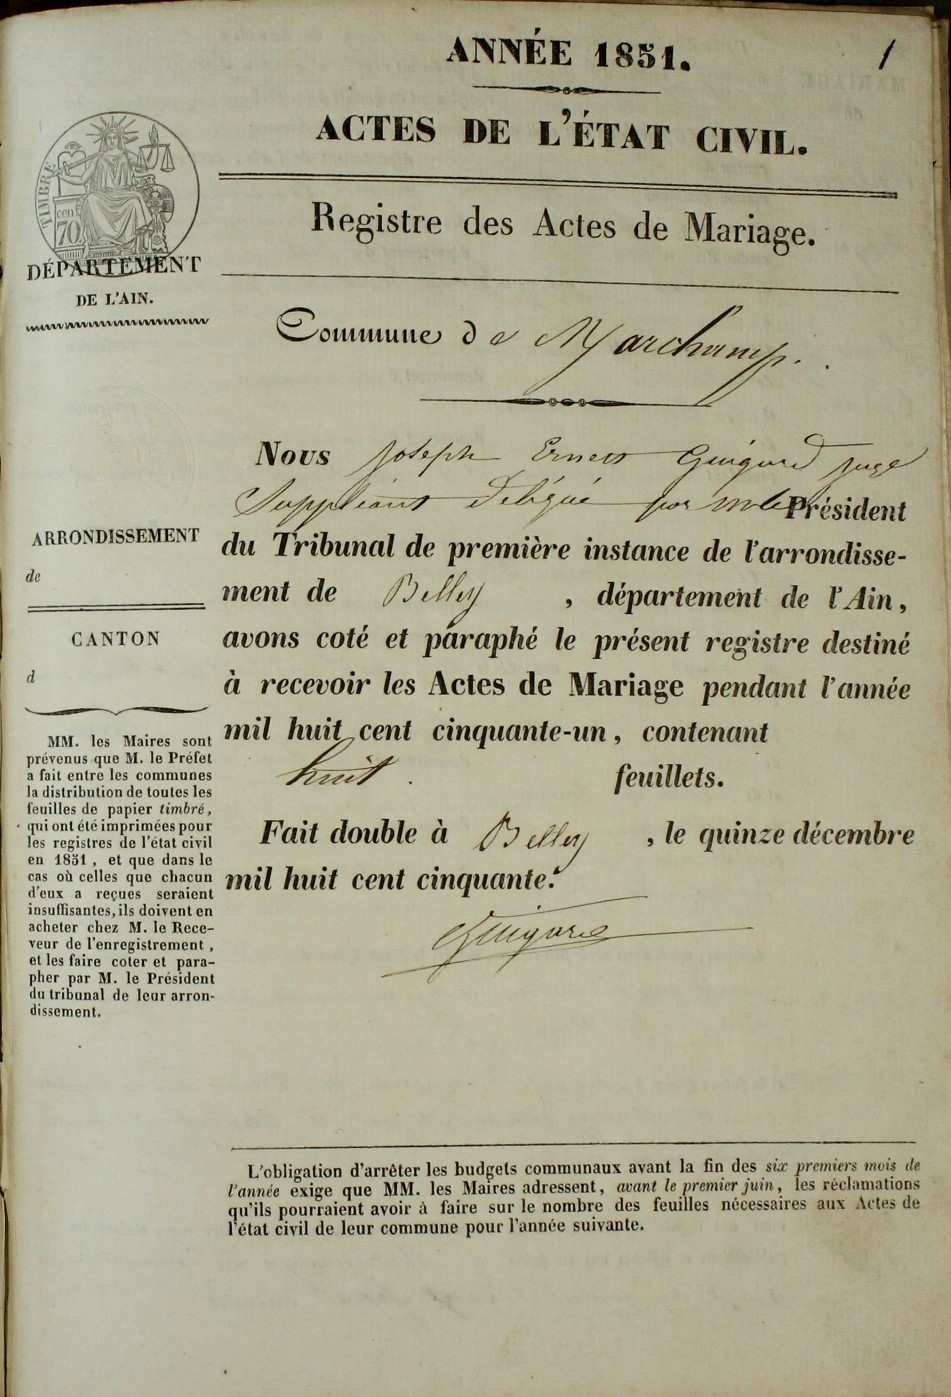 1
ANNÉE 1851.
ACTES DE L'ÉTAT CIVIL.
Registre des Actes de Mariage.
TIMBRE
cen
70
DÉPARTEMENT
DE L'AIN.
Commune de Marchamp.
Nous Joseph Ernest Guigard juge
Suppléant délégué par mr le Président
du Tribunal de première instance de l'arrondisse-
ment de Belley, département de l'Ain,
avons coté et paraphé le présent registre destiné
à recevoir les Actes de Mariage pendant l'année
mil huit cent cinquante-un, contenant
huit. feuillets.
Fait double à Belley, le quinze décembre
mil huit cent cinquante.
Guigard
ARRONDISSEMENT
de
CANTON
d
MM. les Maires sont
prévenus que M. le Préfet
a fait entre les communes
la distribution de toutes les
feuilles de papier timbré,
qui ont été imprimées pour
les registres de l'état civil
en 1851, et que dans le
cas où celles que chacun
d'eux a reçues seraient
insuffisantes, ils doivent en
acheter chez M. le Rece-
veur de l'enregistrement,
et les faire coter et para-
pher par M. le Président
du tribunal de leur arron-
dissement.
L'obligation d'arrêter les budgets communaux avant la fin des six premiers mois de
l'année exige que MM. les Maires adressent, avant le premier juin, les réclamations
qu'ils pourraient avoir à faire sur le nombre des feuilles nécessaires aux Actes de
l'état civil de leur commune pour l'année suivante.